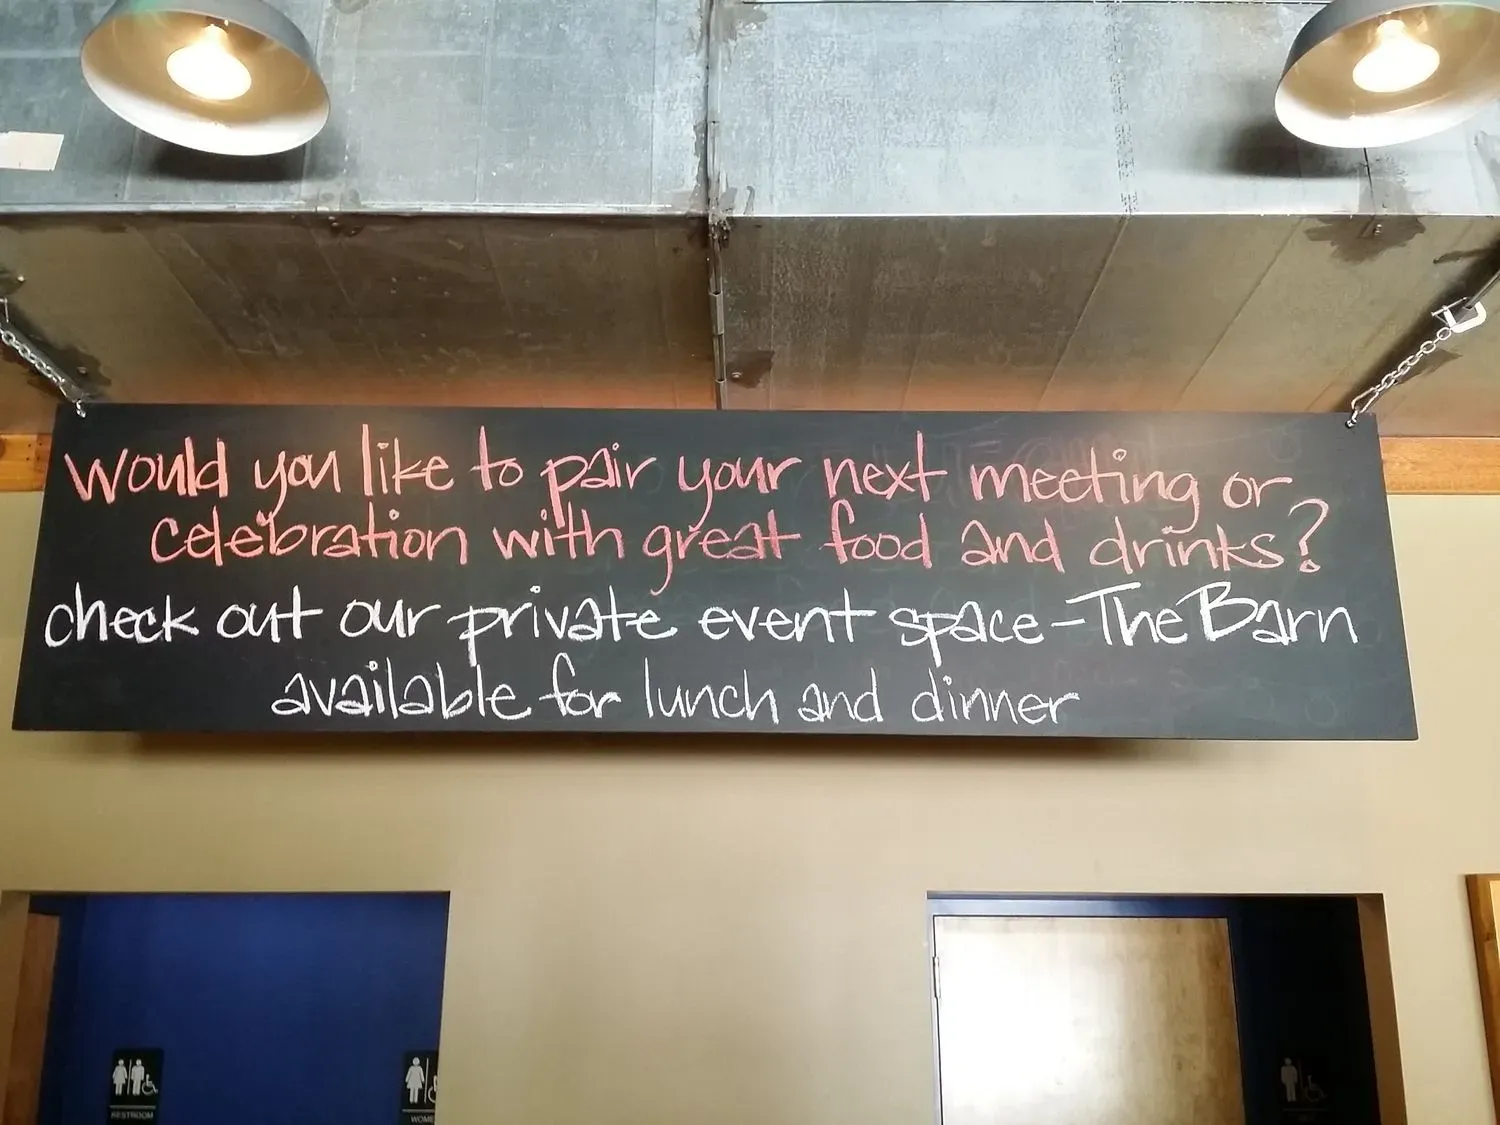 would you like to pair your next meeting or
celebration with great food and drinks?
check out our private event space - The Barn
available for lunch and dinner
RESTROOM